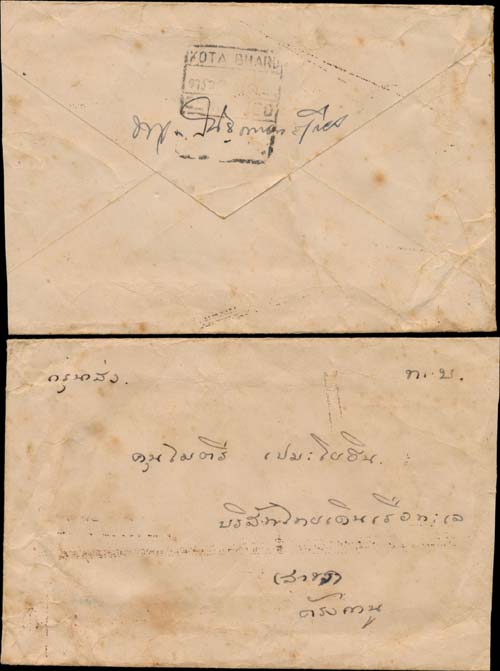 KOTA BHARU
กรุนาส่ง. ท.บ.
คุนไมตรี เปมะโยธิน.
บริสัทไทยเดินเรือทะเล
สาขา
ตรังกานู